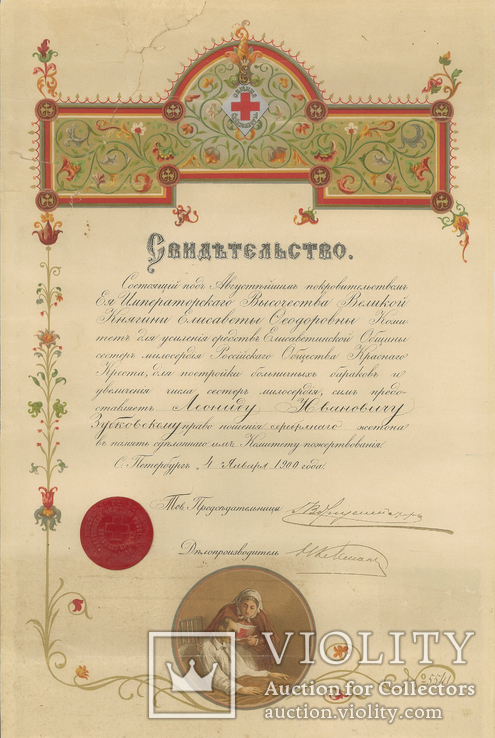 Свидѣтельство.
Состоящій подъ Августѣйшимъ покровительствомъ
Ея Императорскаго Высочества Великой
Княгини Елисаветы Ѳеодоровны Коми
тетъ для усиленія средствъ Елисаветинской Общины
сестеръ милосердія Россійскаго Общества Краснаго
Креста, для постройки больничныхъ бараковъ и
увеличенія числа сестеръ милосердія, симъ предо-
ставляетъ Леониду Ивановичу
Зуковскому право ношенія серебрянаго жетона
въ память сдѣланнаго имъ Комитету пожертвованія
С. Петербургъ 4 Января 1900 года.
Тов. Предсѣдательницы
Дѣлопроизводитель
VIOLITY
Auction for Collectors
auction.violity.com